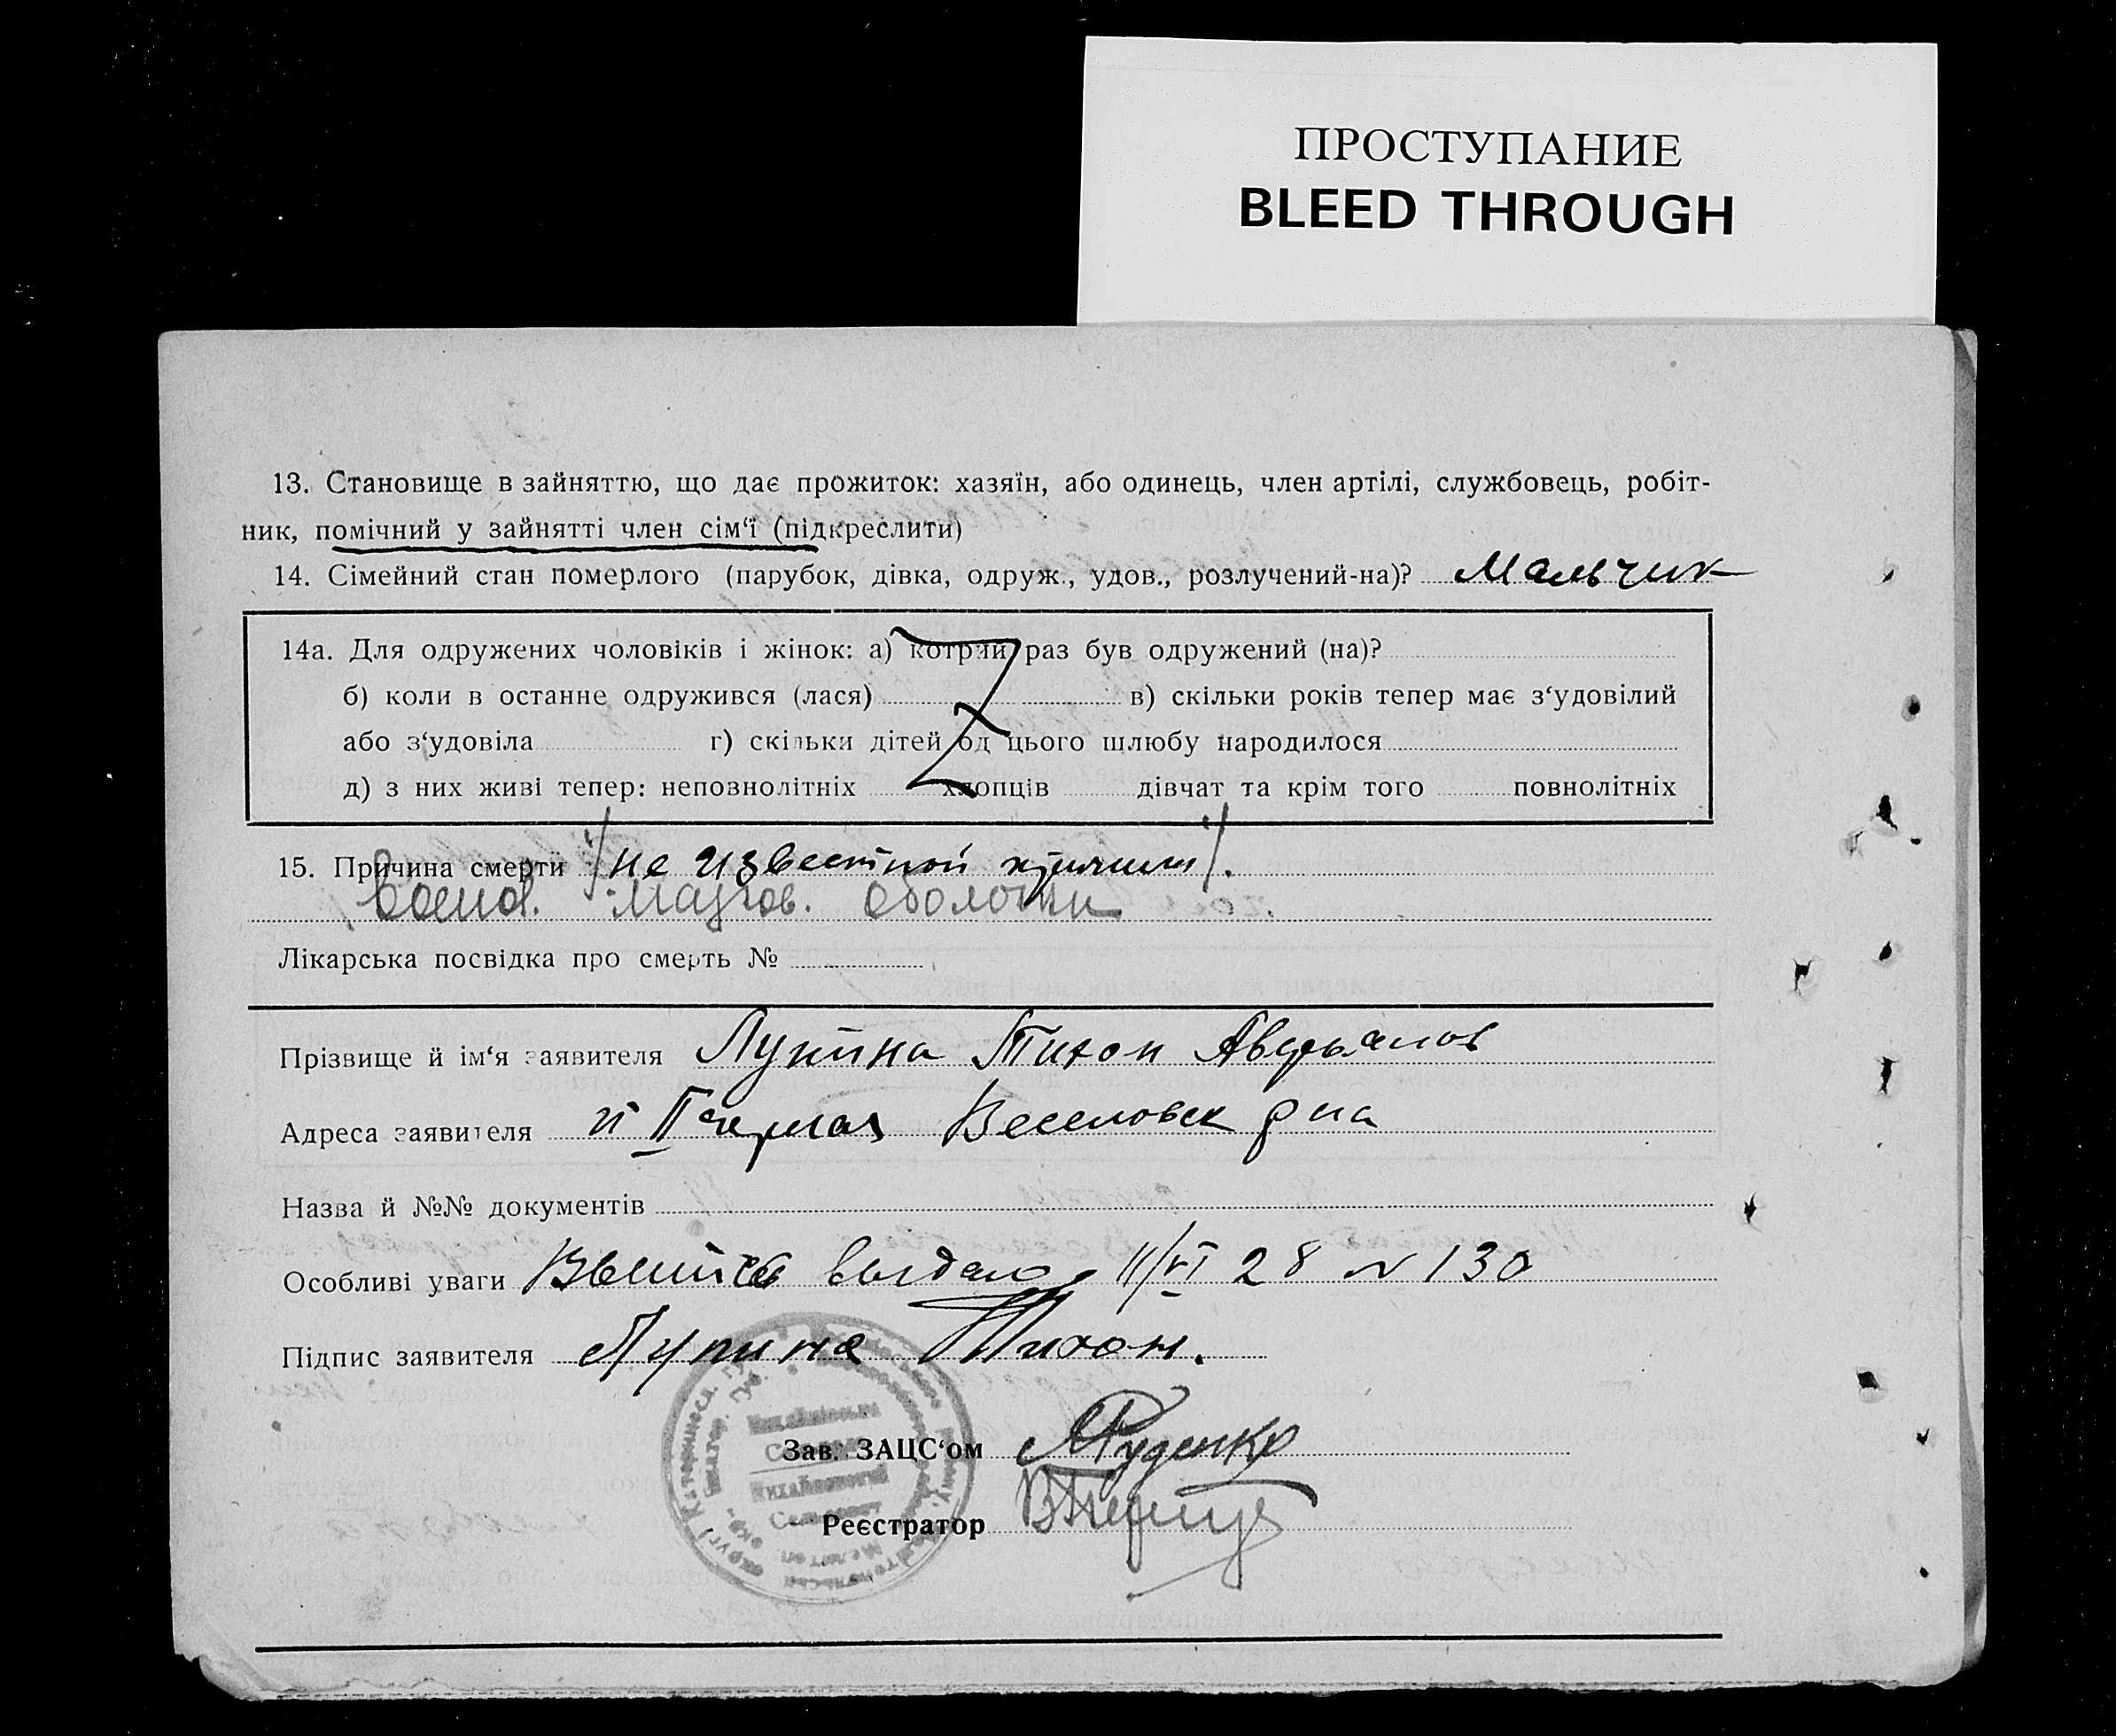 ПРОСТУПАНИЕ
BLEED THROUGH
13. Становище в зайняттю, що дає прожиток: хазяїн, або одинець, член артілі, службовець, робіт-
ник, помічний у зайнятті член сім‘ї (підкреслити)
14. Сімейний стан померлого (парубок, дівка, одруж., удов., розлучений-на)? Мальчик
14а. Для одружених чоловіків і жінок: а) котрий раз був одружений (на)?
б) коли в останне одружився (лася) в) скільки років тепер має з‘удовілий
або з‘удовіла г) скільки дітей од цього шлюбу народилося
д) з них живі тепер: неповнолітніх хлопців дівчат та крім того повнолітніх
15. Причина смерти не известной
оболочки
Лікарська посвідка про смерть №
Прізвище й ім‘я заявителя Лупина Тихон
Адреса заявителя Веселовск р на
Назва й №№ документів
Особливі уваги выдано 11/VI 28 N 130
Підпис заявителя Лупина Тихон.
Зав. ЗАЦС‘ом Руденко
Реєстратор